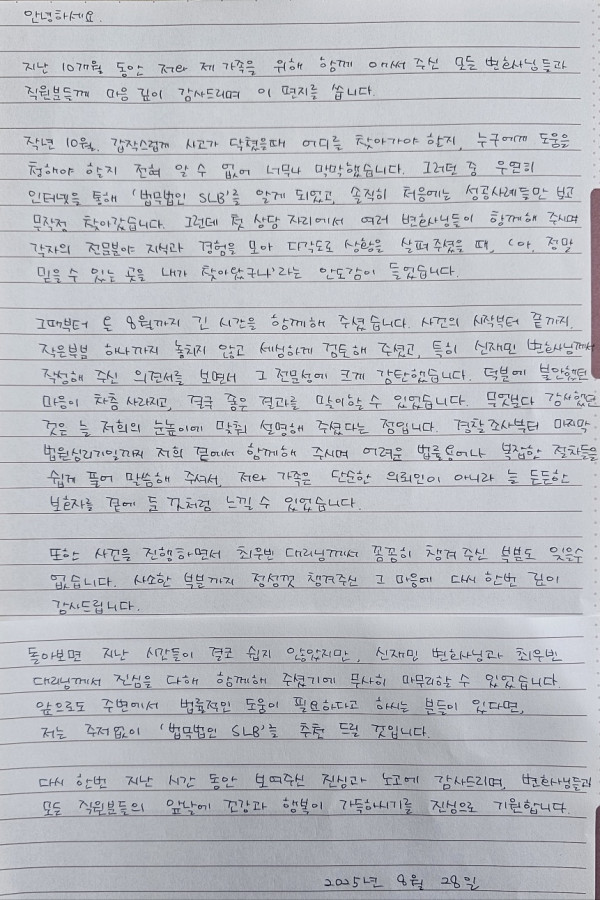 안녕하세요.
지난 10개월 동안 저와 제 가족을 위해 함께 애써 주신 모든 변호사님들과
직원분들께 마음 깊이 감사드리며 이 편지를 씁니다.
작년 10월, 갑작스럽게 사고가 닥쳤을때 어디를 찾아가야 할지, 누구에게 도움을
청해야 할지 전혀 알 수 없어 너무나 막막했습니다. 그러던 중 우연히
인터넷을 통해 '법무법인 SLB'를 알게 되었고, 솔직히 처음에는 성공사례들만 보고
무작정 찾아갔습니다. 그런데 첫 상담 자리에서 여러 변호사님들이 함께해 주시며
각자의 전문분야 지식과 경험을 모아 다각도로 상황을 살펴주셨을 때, '아, 정말
믿을 수 있는 곳을 내가 찾아왔구나'라는 안도감이 들었습니다.
그때부터 올 8월까지 긴 시간을 함께해 주셨습니다. 사건의 시작부터 끝까지,
작은부분 하나까지 놓치지 않고 세심하게 검토해 주셨고, 특히 신재민 변호사님께서
작성해 주신 의견서를 보면서 그 전문성에 크게 감탄했습니다. 덕분에 불안했던
마음이 차츰 사라지고, 결국 좋은 결과를 맞이할 수 있었습니다. 무엇보다 감사했던
것은 늘 저희의 눈높이에 맞춰 설명해 주셨다는 점입니다. 경찰조사부터 마지막
법원심리기일까지 저희 곁에서 함께해 주시며 어려운 법률용어나 복잡한 절차들을
쉽게 풀어 말씀해 주셔서, 저와 가족은 단순한 의뢰인이 아니라 늘 든든한
보호자를 곁에 둔 것처럼 느낄 수 있었습니다.
또한 사건을 진행하면서 최우빈 대리님께서 꼼꼼히 챙겨 주신 부분도 잊을수
없습니다. 사소한 부분까지 정성껏 챙겨주신 그 마음에 다시 한번 깊이
감사드립니다.
돌아보면 지난 시간들이 결코 쉽지 않았지만, 신재민 변호사님과 최우빈
대리님께서 진심을 다해 함께해 주셨기에 무사히 마무리할 수 있었습니다.
앞으로도 주변에서 법률적인 도움이 필요하다고 하시는 분들이 있다면,
저는 주저없이 '법무법인 SLB'를 추천 드릴 것입니다.
다시 한번 지난 시간 동안 보여주신 진심과 노고에 감사드리며, 변호사님들과
모든 직원분들의 앞날에 건강과 행복이 가득하시기를 진심으로 기원합니다.
2025년 8월 28일